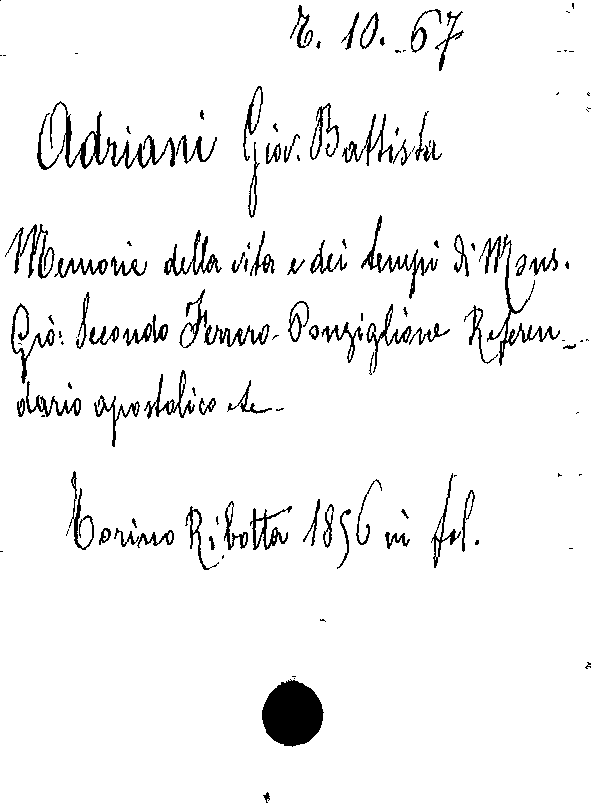 τ. 10. 67
Adriani Giov. Battista
Memorie della vita e dei tempi di Mons.
Giò: Secondo Ferrero-Ponziglione Referen-
dario apostolico etc.
Torino Ribotta 1856 in fol.